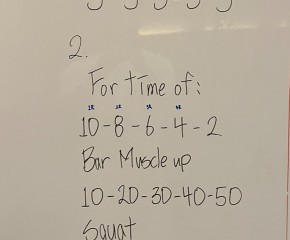 2.
For Time of:
10-8-6-4-2
Bar Muscle up
10-20-30-40-50
Squat